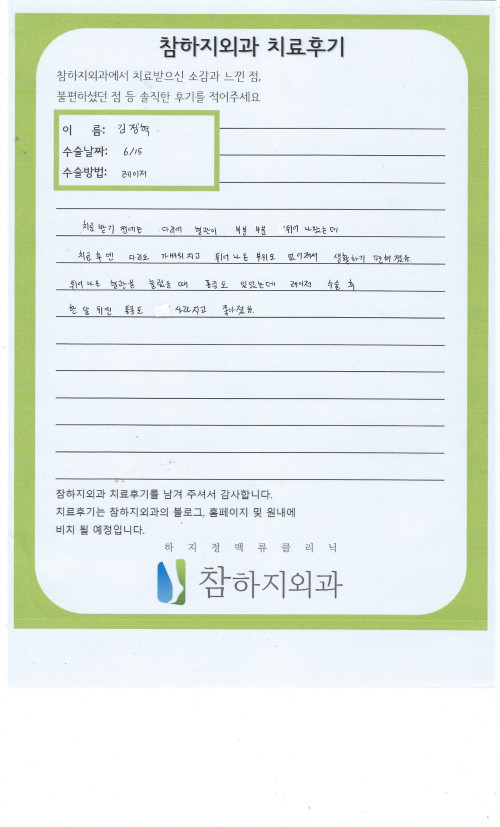 참하지외과 치료후기
참하지외과에서 치료받으신 소감과 느낀 점,
불편하셨던 점 등 솔직한 후기를 적어주세요
이 름: 김정혁
수술날짜: 6/15
수술방법: 레이저
치료 받기 전에는 다리에 혈관이 부분 부분 튀어 나왔는데
치료 후엔 다리도 가벼워지고 튀어 나온 부위도 없어져서 생활하기 편해졌음
튀어 나온 혈관을 눌렀을 때 통증도 있었는데 레이저 수술 후
한 달 뒤엔 통증도 사라지고 좋아졌음
참하지외과 치료후기를 남겨 주셔서 감사합니다.
치료후기는 참하지외과의 블로그, 홈페이지 및 원내에
비치 될 예정입니다.
하지정맥류클리닉
참하지외과